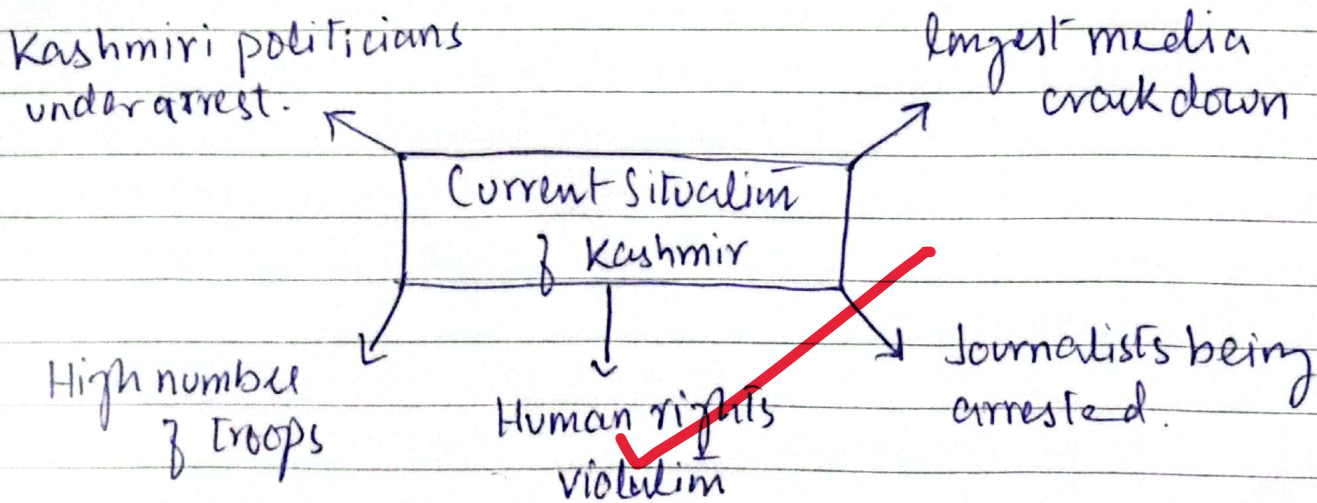 Kashmiri politicians
under arrest.
longest media
crackdown
Current Situation
of Kashmir
High number
of troops
Human rights
violation
Journalists being
arrested.